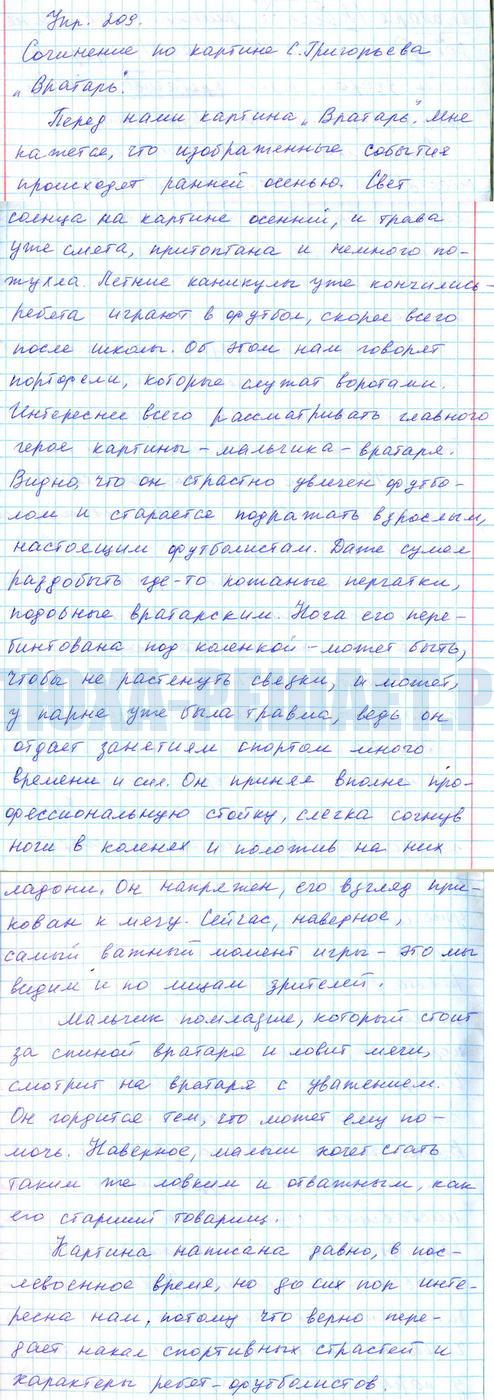 Упр. 209.
Сочинение по картине С. Григорьева
„Вратарь".
Перед нами картина „Вратарь". Мне
кажется, что изображенные события
происходят ранней осенью. Свет
солнца на картине осенний, и трава
уже смята, притоптана и немного по-
жухла. Летние каникулы уже кончились -
ребята играют в футбол, скорее всего
после школы. Об этом нам говорят
портфели, которые служат воротами.
Интереснее всего рассматривать главного
героя картины - мальчика - вратаря.
Видно, что он страстно увлечен футбо-
лом и старается подражать взрослым,
настоящим футболистам. Даже сумел
раздобыть где-то кожаные перчатки,
подобные вратарским. Нога его пере-
бинтована под коленкой - может быть,
чтобы не растянуть связки, а может,
у парня уже была травма, ведь он
отдает занятиям спортом много
времени и сил. Он принял вполне про-
фессиональную стойку, слегка согнув
ноги в коленях и положив на них
ладони. Он напряжен, его взгляд при-
кован к мячу. Сейчас, наверное,
самый важный момент игры - это мы
видим и по лицам зрителей.
Мальчик помладше, который стоит
за спиной вратаря и ловит мячи,
смотрит на вратаря с уважением.
Он гордится тем, что может ему по-
мочь. Наверное, малыш хочет стать
таким же ловким и отважным, как
его старший товарищ.
Картина написана давно, в пос-
левоенное время, но до сих пор инте-
ресна нам, потому что верно пере-
дает накал спортивных страстей и
характеры ребят-футболистов.